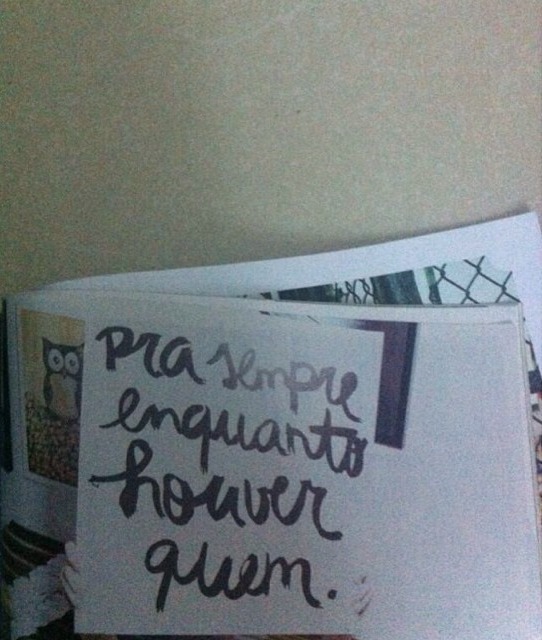 pra sempre
enquanto
houver
quem.